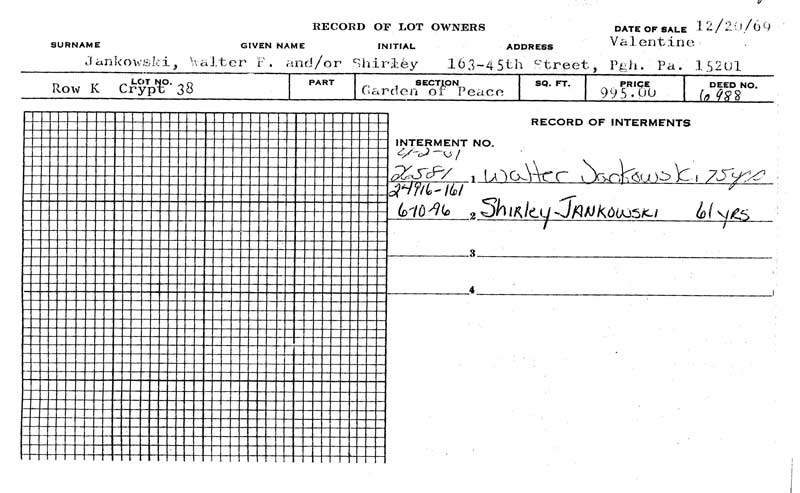 RECORD OF LOT OWNERS
DATE OF SALE 12/20/69
SURNAME GIVEN NAME INITIAL ADDRESS Valentine
Jankowski, Walter F. and/or Shirley 163-45th Street, Pgh. Pa. 15201
LOT NO. PART SECTION SQ. FT. PRICE DEED NO.
Row K Crypt 38 Garden of Peace 995.00 6988
RECORD OF INTERMENTS
INTERMENT NO.
4-2-01
26581 1 Walter Jankowski 75yrs
24916-161
6-10-96 2 Shirley JANKOWSKI 61 yrs
3
4